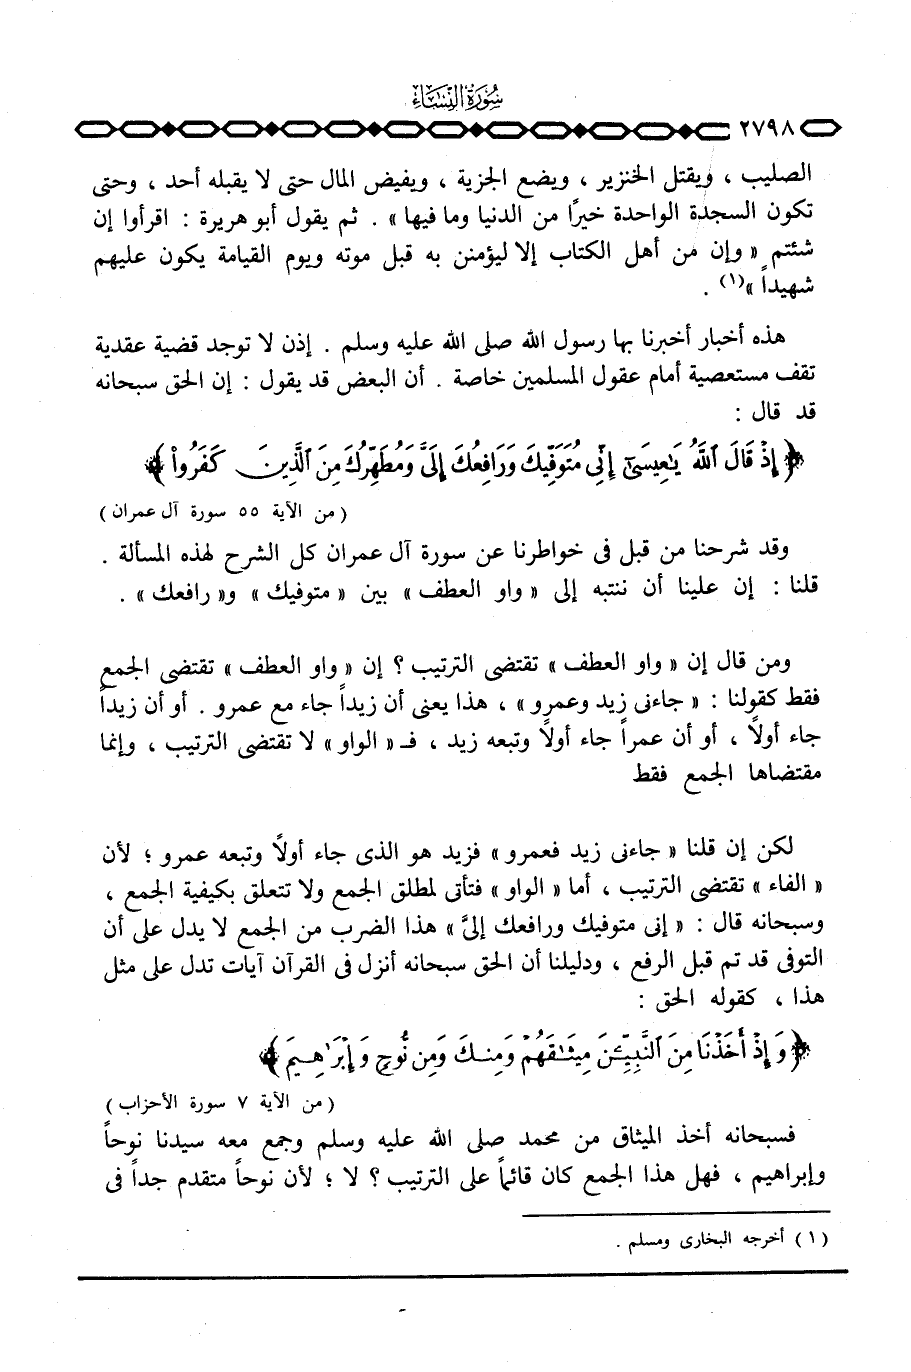 سورة النساء
٢٧٩٨
الصليب ، ويقتل الخنزير ، ويضع الجزية ، ويفيض المال حتى لا يقبله أحد ، وحتى
تكون السجدة الواحدة خيرًا من الدنيا وما فيها » . ثم يقول أبو هريرة : اقرأوا إن
شئتم « وإن من أهل الكتاب إلا ليؤمنن به قبل موته ويوم القيامة يكون عليهم
شهيداً »(١) .
هذه أخبار أخبرنا بها رسول الله صلى الله عليه وسلم . إذن لا توجد قضية عقدية
تقف مستعصية أمام عقول المسلمين خاصة . أن البعض قد يقول : إن الحق سبحانه
قد قال :
﴿ إِذْ قَالَ ٱللَّهُ يَٰعِيسَىٰٓ إِنِّى مُتَوَفِّيكَ وَرَافِعُكَ إِلَىَّ وَمُطَهِّرُكَ مِنَ ٱلَّذِينَ كَفَرُوا۟ ﴾
( من الآية ٥٥ سورة آل عمران )
وقد شرحنا من قبل فى خواطرنا عن سورة آل عمران كل الشرح لهذه المسألة .
قلنا : إن علينا أن ننتبه إلى « واو العطف » بين « متوفيك » و« رافعك » .
ومن قال إن « واو العطف » تقتضى الترتيب ؟ إن « واو العطف » تقتضى الجمع
فقط كقولنا : « جاءنى زيد وعمرو » ، هذا يعنى أن زيداً جاء مع عمرو . أو أن زيداً
جاء أولاً ، أو أن عمراً جاء أولاً وتبعه زيد ، فـ « الواو » لا تقتضى الترتيب ، وإنما
مقتضاها الجمع فقط
لكن إن قلنا « جاءنى زيد فعمرو » فزيد هو الذى جاء أولاً وتبعه عمرو ؛ لأن
« الفاء » تقتضى الترتيب ، أما « الواو » فتأتى لمطلق الجمع ولا تتعلق بكيفية الجمع ،
وسبحانه قال : « إنى متوفيك ورافعك إلىَّ » هذا الضرب من الجمع لا يدل على أن
التوفى قد تم قبل الرفع ، ودليلنا أن الحق سبحانه أنزل فى القرآن آيات تدل على مثل
هذا ، كقوله الحق :
﴿ وَإِذْ أَخَذْنَا مِنَ ٱلنَّبِيِّۦنَ مِيثَٰقَهُمْ وَمِنكَ وَمِن نُّوحٍ وَإِبْرَٰهِيمَ ﴾
( من الآية ٧ سورة الأحزاب )
فسبحانه أخذ الميثاق من محمد صلى الله عليه وسلم وجمع معه سيدنا نوحاً
وإبراهيم ، فهل هذا الجمع كان قائماً على الترتيب ؟ لا ؛ لأن نوحاً متقدم جداً فى
( ١ ) أخرجه البخارى ومسلم .